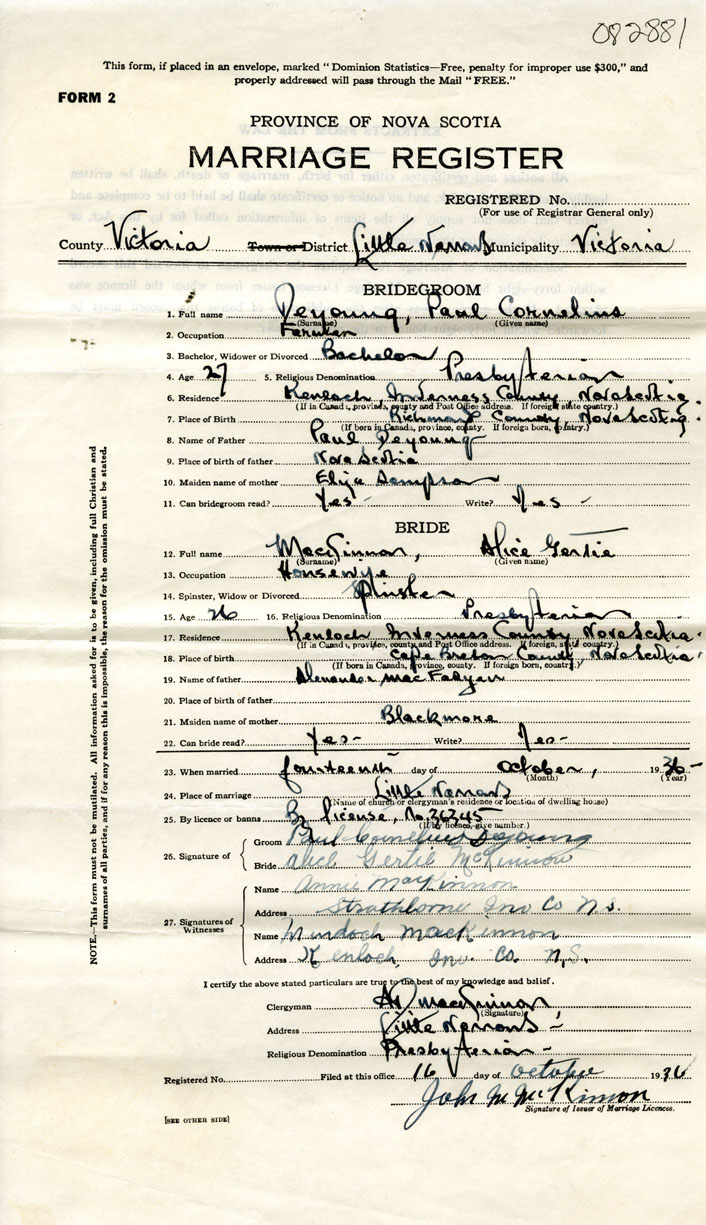 082881
This form, if placed in an envelope, marked "Dominion Statistics—Free, penalty for improper use $300," and
properly addressed will pass through the Mail "FREE."
FORM 2
PROVINCE OF NOVA SCOTIA
MARRIAGE REGISTER
REGISTERED No.
(For use of Registrar General only)
County Victoria Town or District Little Narrows Municipality Victoria
BRIDEGROOM
1. Full name Deyoung, Paul Cornelius
(Surname) (Given name)
2. Occupation Farmer
3. Bachelor, Widower or Divorced Bachelor
4. Age 27 5. Religious Denomination Presbyterian
6. Residence Kenloch, Inverness County, Nova Scotia.
(If in Canada, province, county and Post Office address. If foreign state country.)
7. Place of Birth Richmond County, Nova Scotia.
(If born in Canada, province, county. If foreign born, country.)
8. Name of Father Paul Deyoung
9. Place of birth of father Nova Scotia
10. Maiden name of mother Eliza Sampson
11. Can bridegroom read? Yes - Write? Yes -
BRIDE
12. Full name MacKinnon, Alice Gertie
(Surname) (Given name)
13. Occupation Housewife
14. Spinster, Widow or Divorced Spinster
15. Age 26 16. Religious Denomination Presbyterian
17. Residence Kenloch Inverness County, Nova Scotia.
(If in Canada, province, county and Post Office address. If foreign, state country.)
18. Place of birth Cape Breton County, Nova Scotia
(If born in Canada, province, county. If foreign born, country.)
19. Name of father Alexander MacFadyen
20. Place of birth of father
21. Maiden name of mother Blackmore
22. Can bride read? Yes - Write? Yes -
23. When married fourteenth day of October, 1936 -
(Month) (Year)
24. Place of marriage Little Narrows
(Name of church or clergyman's residence or location of dwelling house)
25. By licence or banns By license, No. 36345
(If by licence, give number.)
26. Signature of Groom Paul Cornelius Deyoung
Bride Alice Gertie McKinnon
27. Signatures of Witnesses Name Annie MacKinnon
Address Strathlorne Inv Co N.S.
Name Murdoch MacKinnon
Address Kenloch, Inv. Co. N.S.
I certify the above stated particulars are true to the best of my knowledge and belief.
Clergyman MacKinnon
(Signature)
Address Little Narrows -
Religious Denomination Presbyterian -
Registered No. Filed at this office 16 day of October 1936
John M McKinnon
Signature of Issuer of Marriage Licences.
[SEE OTHER SIDE]
NOTE.—This form must not be mutilated. All information asked for is to be given, including full Christian and
surnames of all parties, and if for any reason this is impossible, the reason for the omission must be stated.